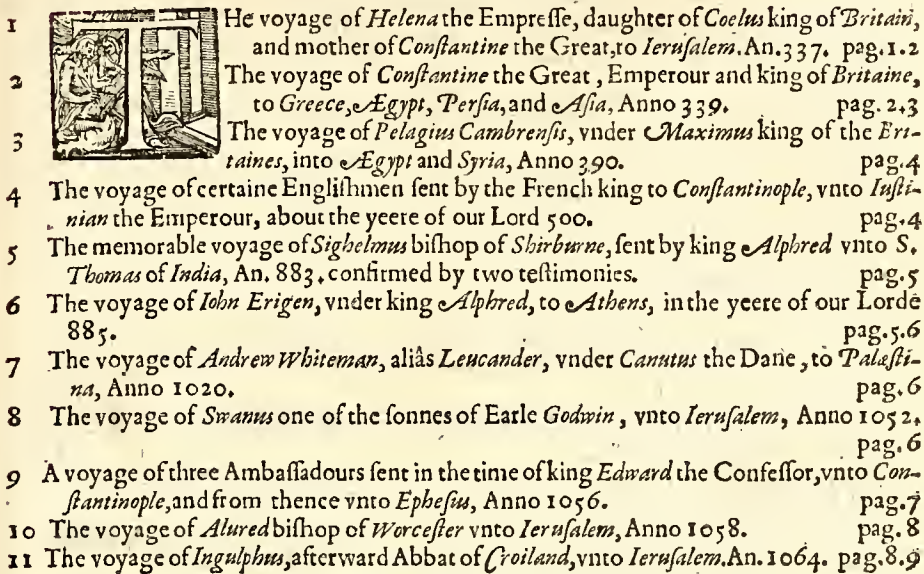 1 THe voyage of Helena the Empreſſe, daughter of Coelus king of Britain,
and mother of Conſtantine the Great, to Ieruſalem. An. 337. pag. 1.2
2 The voyage of Conſtantine the Great, Emperour and king of Britaine,
to Greece, Ægypt, Perſia, and Aſia, Anno 339. pag. 2,3
3 The voyage of Pelagius Cambrenſis, vnder Maximus king of the Bri-
taines, into Ægypt and Syria, Anno 390. pag.4
4 The voyage of certaine Engliſhmen ſent by the French king to Conſtantinople, vnto Iuſti-
nian the Emperour, about the yeere of our Lord 500. pag.4
5 The memorable voyage of Sighelmus biſhop of Shirburne, ſent by king Alphred vnto S.
Thomas of India, An. 883. confirmed by two teſtimonies. pag.5
6 The voyage of Iohn Erigen, vnder king Alphred, to Athens, in the yeere of our Lorde
885. pag.5.6
7 The voyage of Andrew Whiteman, aliâs Leucander, vnder Canutus the Dane, to Palæſti-
na, Anno 1020. pag.6
8 The voyage of Swanus one of the ſonnes of Earle Godwin, vnto Ieruſalem, Anno 1052.
pag.6
9 A voyage of three Ambaſſadours ſent in the time of king Edward the Confeſſor, vnto Con-
ſtantinople, and from thence vnto Epheſus, Anno 1056. pag.7
10 The voyage of Alured biſhop of Worceſter vnto Ieruſalem, Anno 1058. pag.8
11 The voyage of Ingulphus, afterward Abbat of Croiland, vnto Ieruſalem. An. 1064. pag.8.9